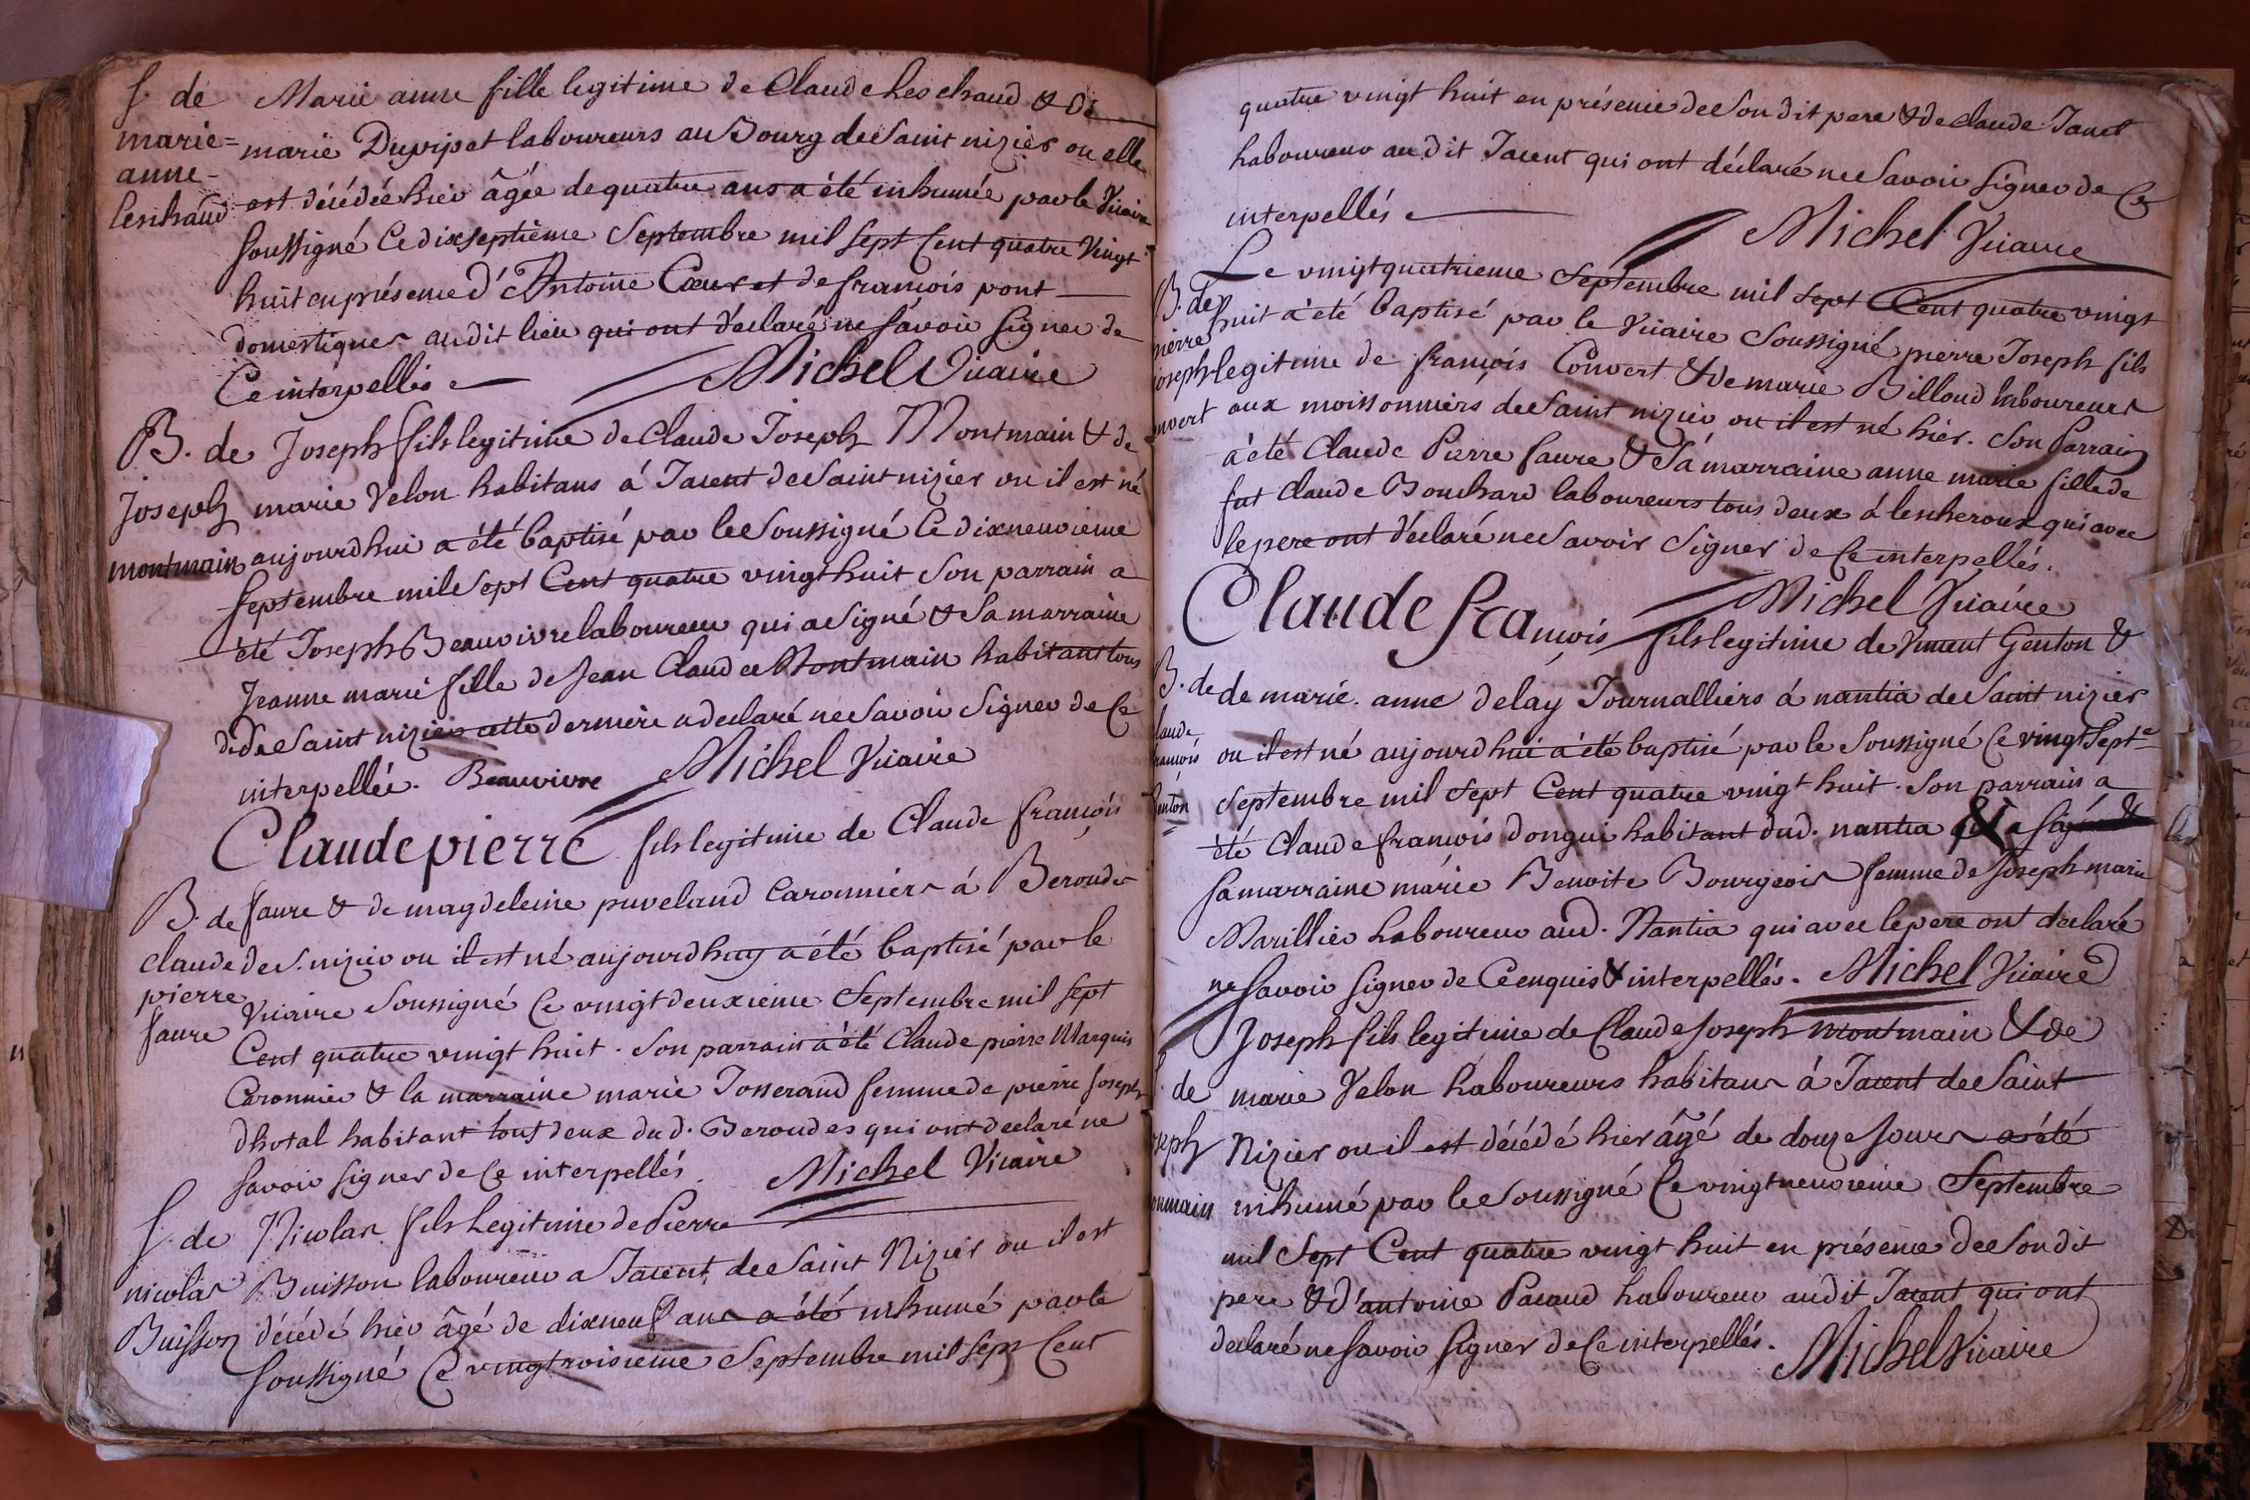 f. de Marie anne fille legitime de Claude Leschaud & De
marie= marie Dupvipet laboureurs au Bourg de Saint nizier ou elle
anne- est décédée hier âgée de quatre ans a été inhumée par le Vicaire
leschaud soussigné Ce dixseptième Septembre mil sept Cent quatre Vingt
huit en présence d'Antoine Cœur et de françois pont
domestiques audit lieu qui ont déclaré ne sávoir signer de
Ce interpellés Michel Vicaire
B. de Joseph fils legitime de Claude Joseph Montmain & de
Joseph marie Velon habitans á Jacent de Saint nizier ou il est né
montmain aujourdhui a été baptisé par le Soussigné Ce dixneuvieme
Septembre mil Sept Cent quatre vingt huit Son parrain a
été Joseph Beauvivre laboureur qui a signé & Sa marraine
Jeanne marie fille de Jean Claude Montmain habitant tous
deSaint nizier cette derniere a declaré ne Savoir Signer de Ce
interpellée. Beauvivre Michel Vicaire
Claude pierre fils legitime de Claude françois
B. de faure & de magdeleine puveland Caronniers á Beroudes
claude de S. nizier ou il est né aujourdhuy a été baptisé par le
pierre Vicaire Soussigné Ce vingt deuxieme Septembre mil sept
faure Cent quatre vingt huit. Son parrain a été Claude pierre Marquis
Caronnier & la marraine marie Josserand femme de pierre Joseph
dhotal habitant tout deux dud. Beroudes qui ont declaré ne
savoir signer de Ce interpellés. Michel Vicaire
f. de Nicolas fils Legitime de Pierre
nicolas Buisson laboureur a Jacent de Saint Nizier ou il est
Buisson décédé hier âgé de dixneuf ans a été inhumé par le
soussigné Ce vingtroisieme Septembre mil Sept Cent
quatre vingt huit en présence de Son dit pere & de Claude
Laboureur audit Jacent qui ont déclaré ne Savoir Signer de Ce
interpellés Michel Vicaire
Le vingtquatrieme Septembre mil Sept Cent quatre vingt
B. de huit a été baptisé par le Vicaire Soussigné pierre Joseph fils
pierre
joseph legitime de françois Convert & de marie Billoud laboureurs
nvert aux moissonniers de Saint nizier ou il est né hier. Son Parrain
a été Claude Pierre faure & Sa marraine anne marie fille de
fut Claude Bouchard laboureurs tous deux á lescheroux qui avec
le pere ont déclaré ne Savoir Signer de Ce interpellés.
Michel Vicaire
Claude françois fils legitime de Vincent Genton &
B. de de marie anne delay Journalliers á nantia de Saint nizier
laude
françois ou il est né aujourdhui a été baptisé par le Soussigné Ce vingt Sept.e
enton Septembre mil Sept Cent quatre vingt huit. Son parrain a
été Claude françois dongui habitant dud. nantia qui a signé &
sa marraine marie Benoite Bourgeois femme de Joseph marie
Marillier Laboureur aud. Nantia qui avec le pere ont declaré
ne savoir signer de Ce enquis & interpellés. Michel Vicaire
Joseph fils legitime de Claude Joseph montmain & de
de marie Velon Laboureurs habitans á Jacent de Saint
seph Nizier ou il est décédé hier âgé de douze Jours a été
onmain inhumé par le Soussigné Ce vingtneuvieme Septembre
mil Sept Cent quatre vingt huit en présence de Son dit
pere & d'antoine Pacaud Laboureur audit Jacent qui ont
declaré ne Savoir Signer de Ce interpellés. Michel Vicaire